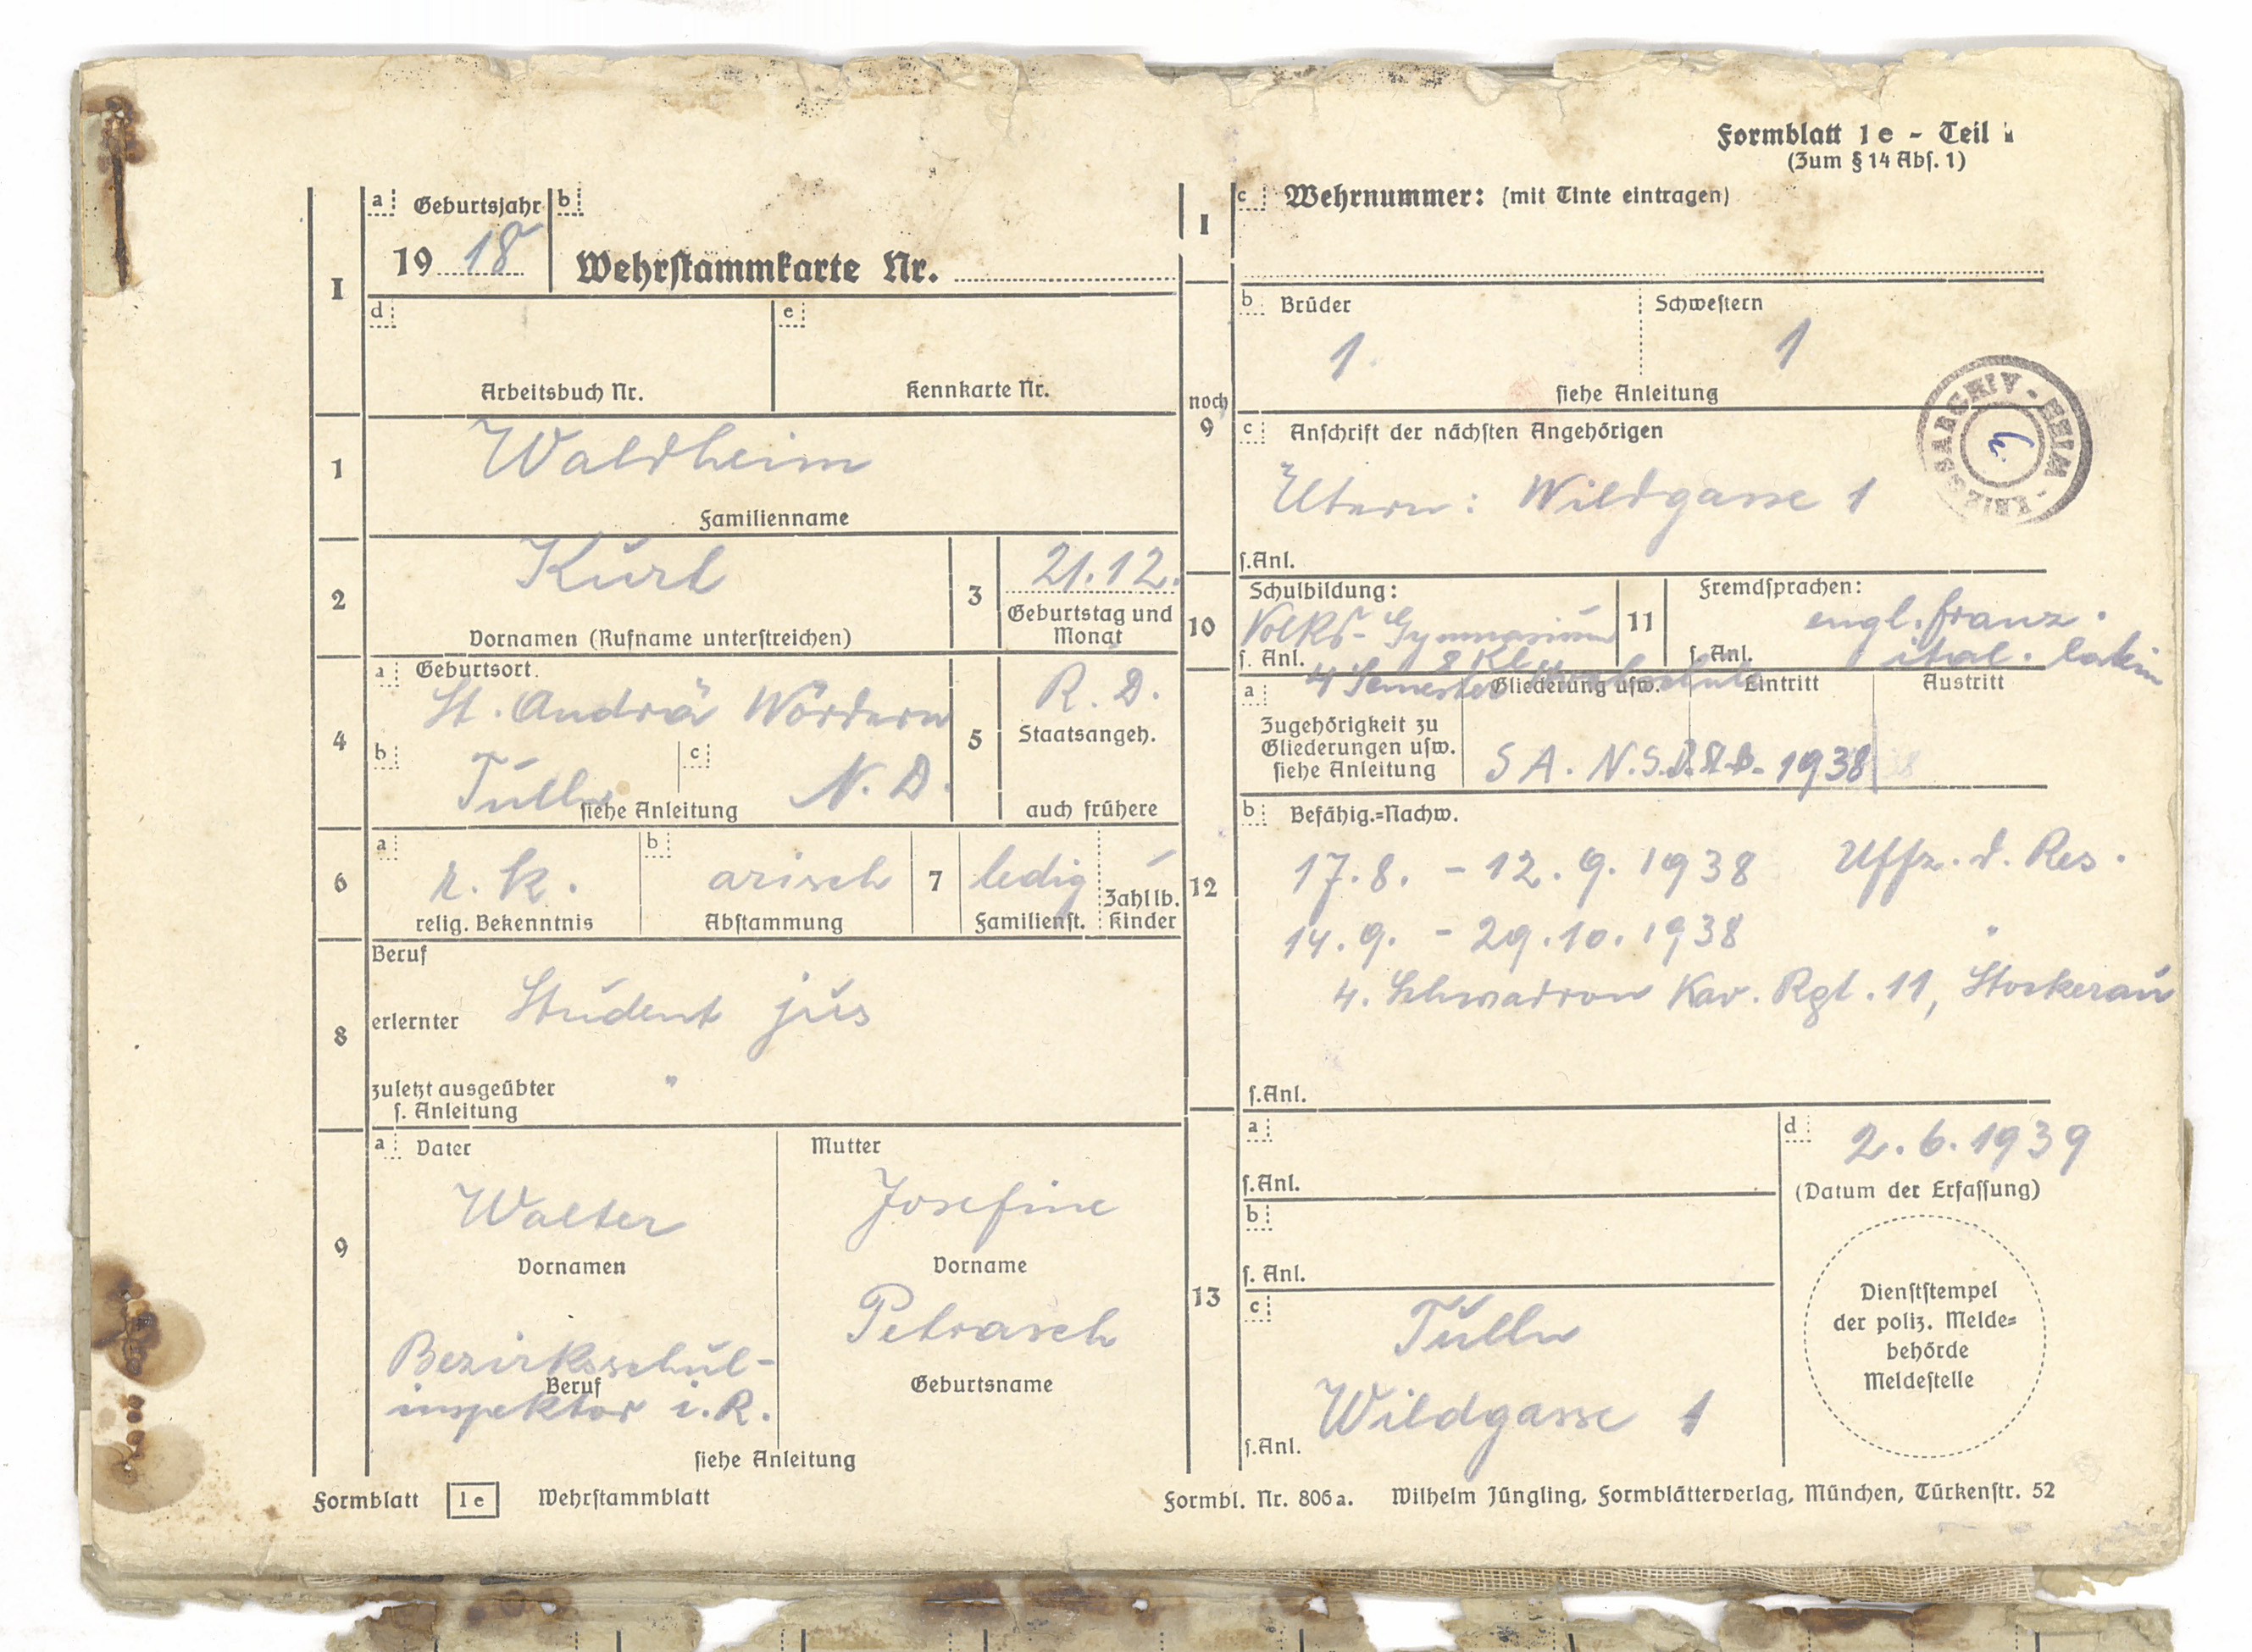 Formblatt 1e - Teil
(Zum § 14 Abs. 1)
I
a Geburtsjahr
19 18
b
Wehrstammkarte Nr.
I
c Wehrnummer: (mit Tinte eintragen)
d
Arbeitsbuch Nr.
e
Kennkarte Nr.
1
Waldheim
Familienname
2
Kurt
Vornamen (Rufname unterstreichen)
3
21.12.
Geburtstag und
Monat
4
a Geburtsort
St. Andrä Wördern
b
Tulln
c
N. D.
siehe Anleitung
5
R. D.
Staatsangeh.
auch frühere
6
a
r. k.
relig. Bekenntnis
b
arisch
Abstammung
7
ledig
Familienst.
Zahl lb.
Kinder
8
Beruf
erlernter Student jus
zuletzt ausgeübter "
s. Anleitung
9
a Vater
Walter
Vornamen
Bezirksschul-
Beruf
inspektor i. R.
Mutter
Josefine
Vorname
Petrasch
Geburtsname
siehe Anleitung
noch
9
b Brüder
1.
Schwestern
1
siehe Anleitung
c Anschrift der nächsten Angehörigen
Eltern: Wildgasse 1
s. Anl.
KREISARCHIV - HEIM
10
Schulbildung:
Volks- Gymnasium
s. Anl. 8 Kl.
4 Semester Hochschule
11
Fremdsprachen:
engl. franz.
s. Anl. ital. latein
12
a
Zugehörigkeit zu
Gliederungen usw.
siehe Anleitung
Gliederung usw. Eintritt Austritt
SA. N.S.D.St.B. 1938
b Befähig.=Nachw.
17.8. - 12.9.1938 Uffz. d. Res.
14.9. - 29.10.1938 "
4. Schwadron Kav. Rgt. 11, Stockerau
s. Anl.
13
a
s. Anl.
b
s. Anl.
c
Tulln
Wildgasse 1
s. Anl.
d
2.6.1939
(Datum der Erfassung)
Dienststempel
der poliz. Melde=
behörde
Meldestelle
Formblatt 1e Wehrstammblatt
Formbl. Nr. 806a. Wilhelm Jüngling, Formblätterverlag, München, Türkenstr. 52